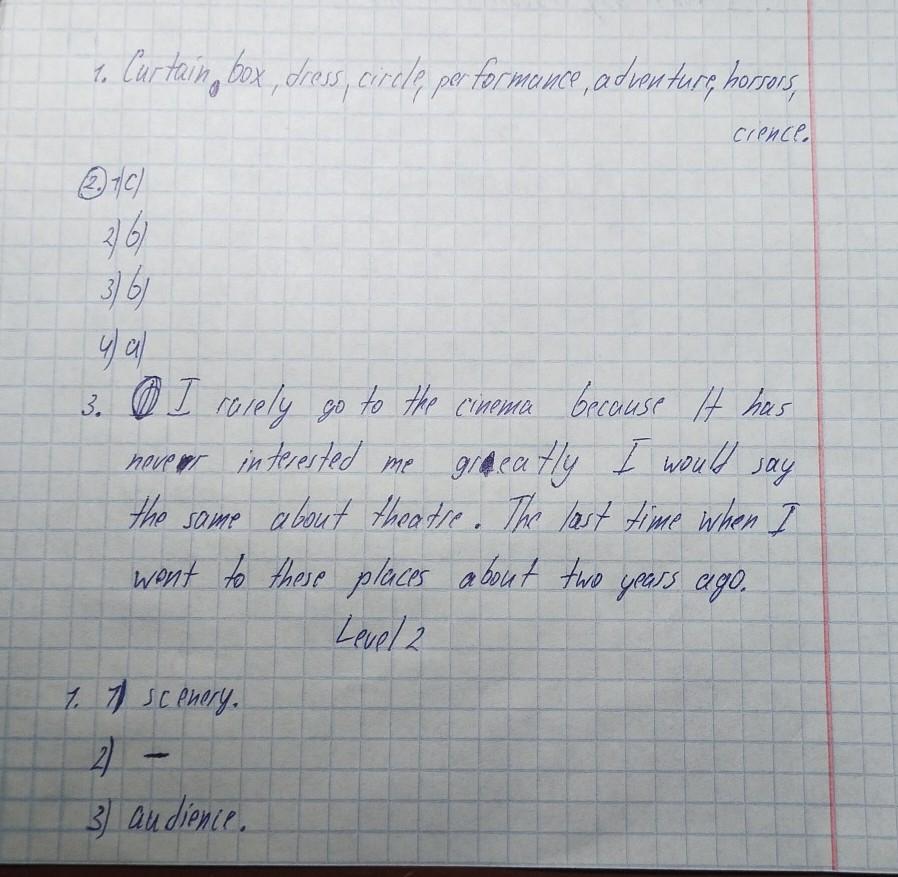 1. Curtain, box, dress, circle, performance, adventure, horrors,
cience.
2. 1) c)
2) b)
3) b)
4) a)
3. I rarely go to the cinema because It has
never interested me greatly I would say
the same about theatre. The last time when I
went to these places about two years ago.
Level 2
1. 1) scenery.
2) –
3) audience.